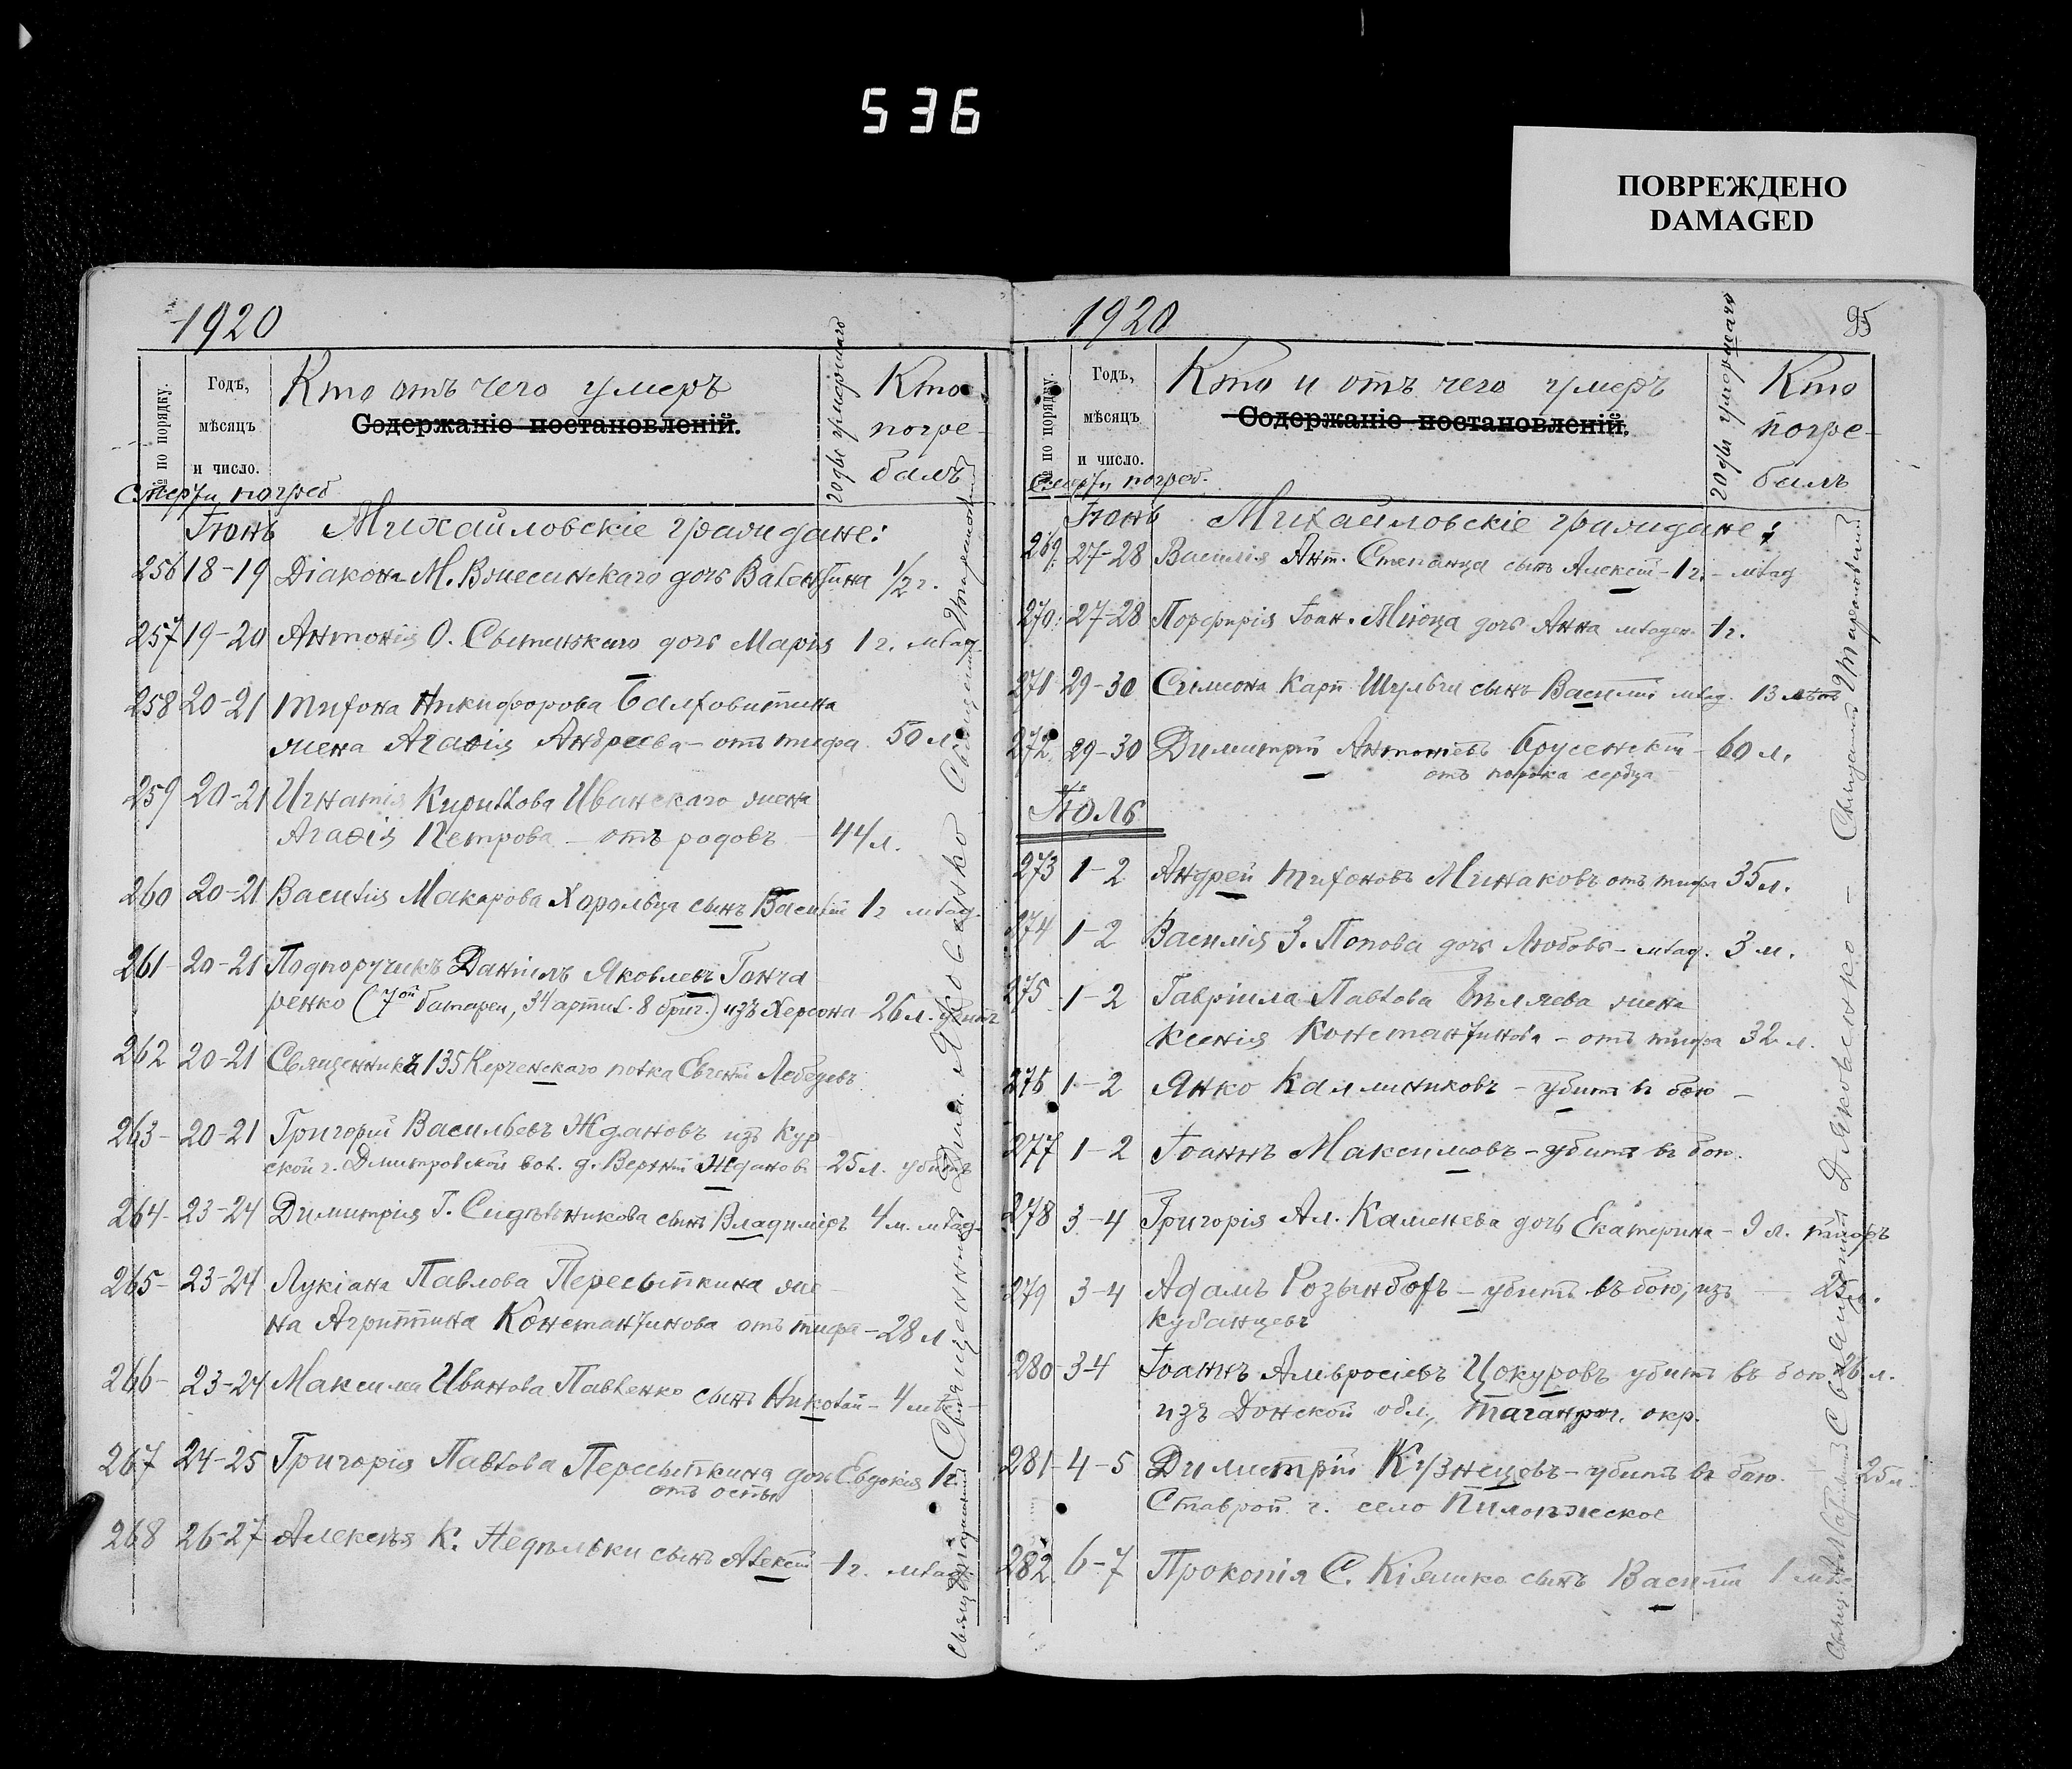 536
ПОВРЕЖДЕНО
DAMAGED
1920
№ по порядку.
Годъ,
мѣсяцъ
и число.
Смерти погреб.
Кто отъ чего умеръ
Содержаніе постановленій.
Годы умершаго
Кто
погре-
балъ
Іюнь Михайловскіе граждане:
256 18-19 Діакона М. Вознесинскаго дочь Валентина 1/2 г.
257 19-20 Антонія О. Свитинскаго дочь Марія 1 г. млад.
258 20-21 Трифона Никифорова
жена Агафія Андреева - отъ тифа 50 л.
259 20-21 Игнатія Кириллова Иванскаго жена
Агафія Петрова - отъ родовъ - 44 л.
260 20-21 Василія Макарова Хорольца сынъ Василій 1 г млад.
261 20-21 Подпоручикъ Даніилъ Яковлевъ Гонча
ренко (7ой батареи, 34 артил. 8 бриг.) изъ Херсона - 26 л. убитъ
262 20-21 Священникъ 135 Керченскаго полка Евгеній Лебедевъ
263- 20-21 Григорій Васильевъ Ждановъ изъ Кур
ской г. Дмитровской вол. д. Верхній Ждановъ - 25 л. убитъ
264- 23-24 Димитрія Г. Сидѣльникова сынъ Владиміръ 4 м. млад.
265- 23-24 Лукіана Павлова Пересыпкина же-
на Агриппина Константинова отъ тифа - 28 л
266- 23-24 Максима Иванова Павленко сынъ Николай - 4 мѣс.
267 24-25 Григорія Павлова Пересыпкина дочь Евдокія 1 г.
отъ оспы
268 26-27 Алексѣя К. Недѣльки сынъ Алексѣй - 1 г. млад.
Священникъ Дим. Яковенко
1920
№ по порядку.
Годъ,
мѣсяцъ
и число.
Смерти погреб.
Кто и отъ чего умеръ
Содержаніе постановленій.
Годы умершаго
Кто
погре-
балъ
Іюнь Михайловскіе граждане:
269. 27-28 Василія Ант. Степанца сынъ Алексѣй - 1 г. - млад
270. 27-28 Порфирія Іоан. дочь Анна младен. 1 г.
271 29-30 Симеона Карп. Шульги сынъ Василій млад. 13 лѣтъ
272. 29-30 Димитрій Антоніевъ Брусенскій - 60 л.
отъ порока сердца
Іюль
273 1-2 Андрей Трифоновъ Минаковъ отъ тифа 35 л.
274 1-2 Василія З. Попова дочь Любовь - млад. 3 м.
275 1-2 Гавріила Павлова Бѣляева жена
Ксенія Константинова - отъ тифа 32 л.
276 1-2 Янко Каллиниковъ - убитъ въ бою -
277 1-2 Іоаннъ Максимовъ - убитъ въ бою.
278 3-4 Григорія Ал. Каменева дочь Екатерина - 9 л. тифъ
279 3-4 Адамъ - убитъ въ бою, изъ - 25 л.
Кубанцевъ
280 3-4 Іоаннъ Амвросіевъ Цокуровъ убитъ въ бою 26 л.
изъ Донской обл., Таганрог. окр.
281 4-5 Димитрій Кузнецовъ - убитъ въ бою. - 25 л.
Ставроп. г. село
282 6-7 Прокопія С. Кіяшко сынъ Василій 1 мѣс.
Священникъ Яковенко